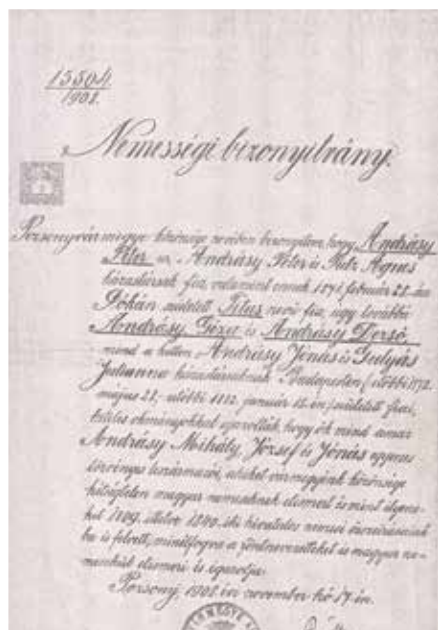 13504
1901.
Nemességi bizonyítvány.
Pozsonyvármegye közönsége nevében bizonyítom, hogy Andrásy
Péter az Andrásy Péter és Putz Ágnes
házastársak fia, valamint ennek február 28-án
Dókán született Titus nevű fia, úgy továbbá
Andrásy Géza és Andrásy Dezső
mind a ketten Andrásy Jónás és Gulyás
Julianna házastársaknak Budapesten /előbbi 1872.
május 21, utóbbi 1882. január 12-én/ született fiai,
hiteles okmányokkal igazolták, hogy ők mind amaz
Andrásy Mihály, József és Jónás egyenes
törvényes leszármazói, akiket vármegyénk közönsége
kétségtelen magyar nemeseknek elismert és mint ilyene-
ket illetve 1840. évi hivatalos nemesi összeírásainak
ba is felvett, minélfogva a föntnevezetteket is magyar ne-
meseknek elismeri és igazolja.
Pozsony, 1901. évi november hó 17-én.